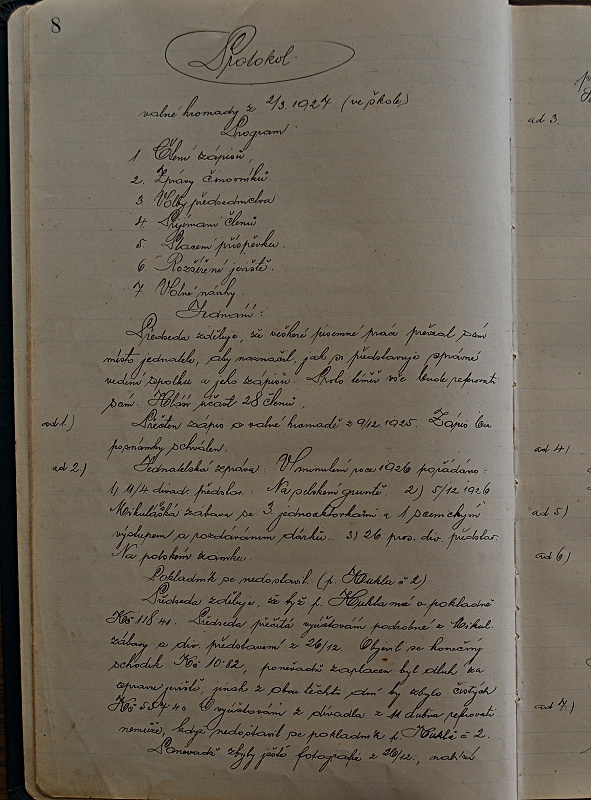 8
Protokol
valné hromady z 2/3. 1927 (ve škole)
Program
1 Čtení zápisů,
2. Zprávy činovníků
3 Volby předsednictva
4. Přijímání členů
5. Placení příspěvku.
6. Rozšíření jeviště.
7. Volné návrhy.
Jednání:
Předseda zděluje, že veškeré písemné práce převzal sám
místo jednatele, aby naznačil, jak si představuje správné
vedení spolku a jeho zápisů. Proto téměř vše bude referovati
sám. Hlásí účast 28 členů.
ad 1.) Přečten zápis o valné hromadě z 9/12. 1925. Zápis bez
poznámky schválen.
ad 2.) Jednatelská zpráva: V minulém roce 1926 pořádáno:
1) 11/4 divad. představ.: Na selském gruntě. 2) 5/12 1926
Mikulášská zábava se 3. jednoaktovkami a 1 scenickým
výstupem a rozdáváním dárků. 3) 26 pros. div. představ.
Na polském zámku.
Pokladník se nedostavil (p. Kukla č 2)
Předseda zděluje, že týž p. Kukla má v pokladně
Kč 118 41. Předseda přečítá vyúčtování podrobné z Mikul.
zábavy a div. představení z 26/12. Objevil se konečný
schodek Kč 10·82, poněvadž zaplacen byl dluh za
opravu jeviště, jinak z obou těchto dní by zbylo čistých
Kč 557·40 O vyúčtování z divadla z 11 dubna referovati
nemůže, když nedostavil se pokladník p. Kukla č 2.
Poněvadž zbyly ještě fotografie z 26/12.,
ad 3.
ad 4)
ad 5)
ad 6)
ad 7.)